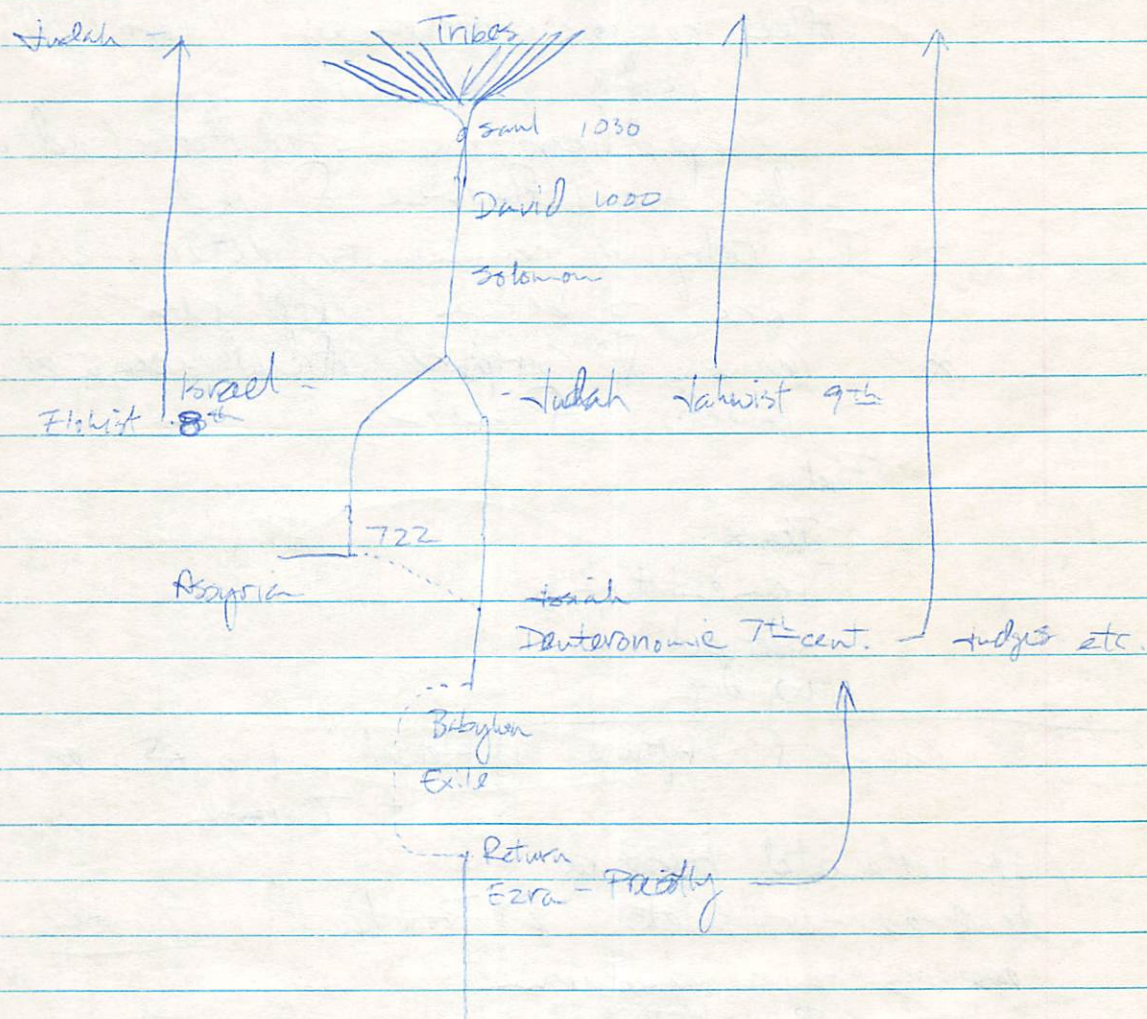 Judah - Tribes
Saul 1030
David 1000
Solomon
Israel - - Judah Jahwist 9th
Elohist 8th
722
Assyria
Josiah
Deuteronomic 7th cent. - Judges etc.
Babylon
Exile
Return
Ezra - Priestly